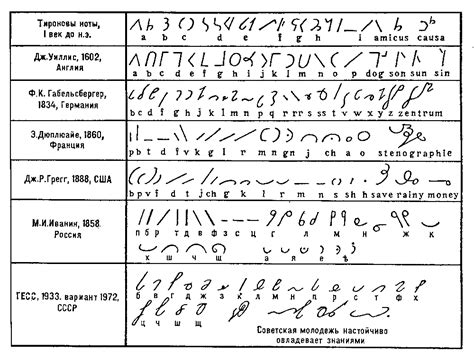 Тироновы ноты,
I век до н.э.
a b c d e f g h i l amicus causa
Дж.Уиллис, 1602,
Англия
a b c d e f g h i j k l m n o p dog son sun sin
Ф.К. Габельсбергер,
1834, Германия
b c d f g h j k l m n p q r r r s s s t v w x y z zentrum
Э.Дюплюайе, 1860,
Франция
p b t d f v k g l r m n g n j ch a o stenographie
Дж.Р.Грегг, 1888, США
b p v f d t j ch g k l r m n s sh h save rainy money
М.И.Иванин, 1858
Россия
п б р т д в ф з с ц г л м н ж к
х ш т ч щ а я е
ТЕСС, 1933. вариант 1972,
СССР
б в г д ж з к л м н п р с т ф х
ц ч ш щ
Советская молодежь настойчиво
овладевает знаниями